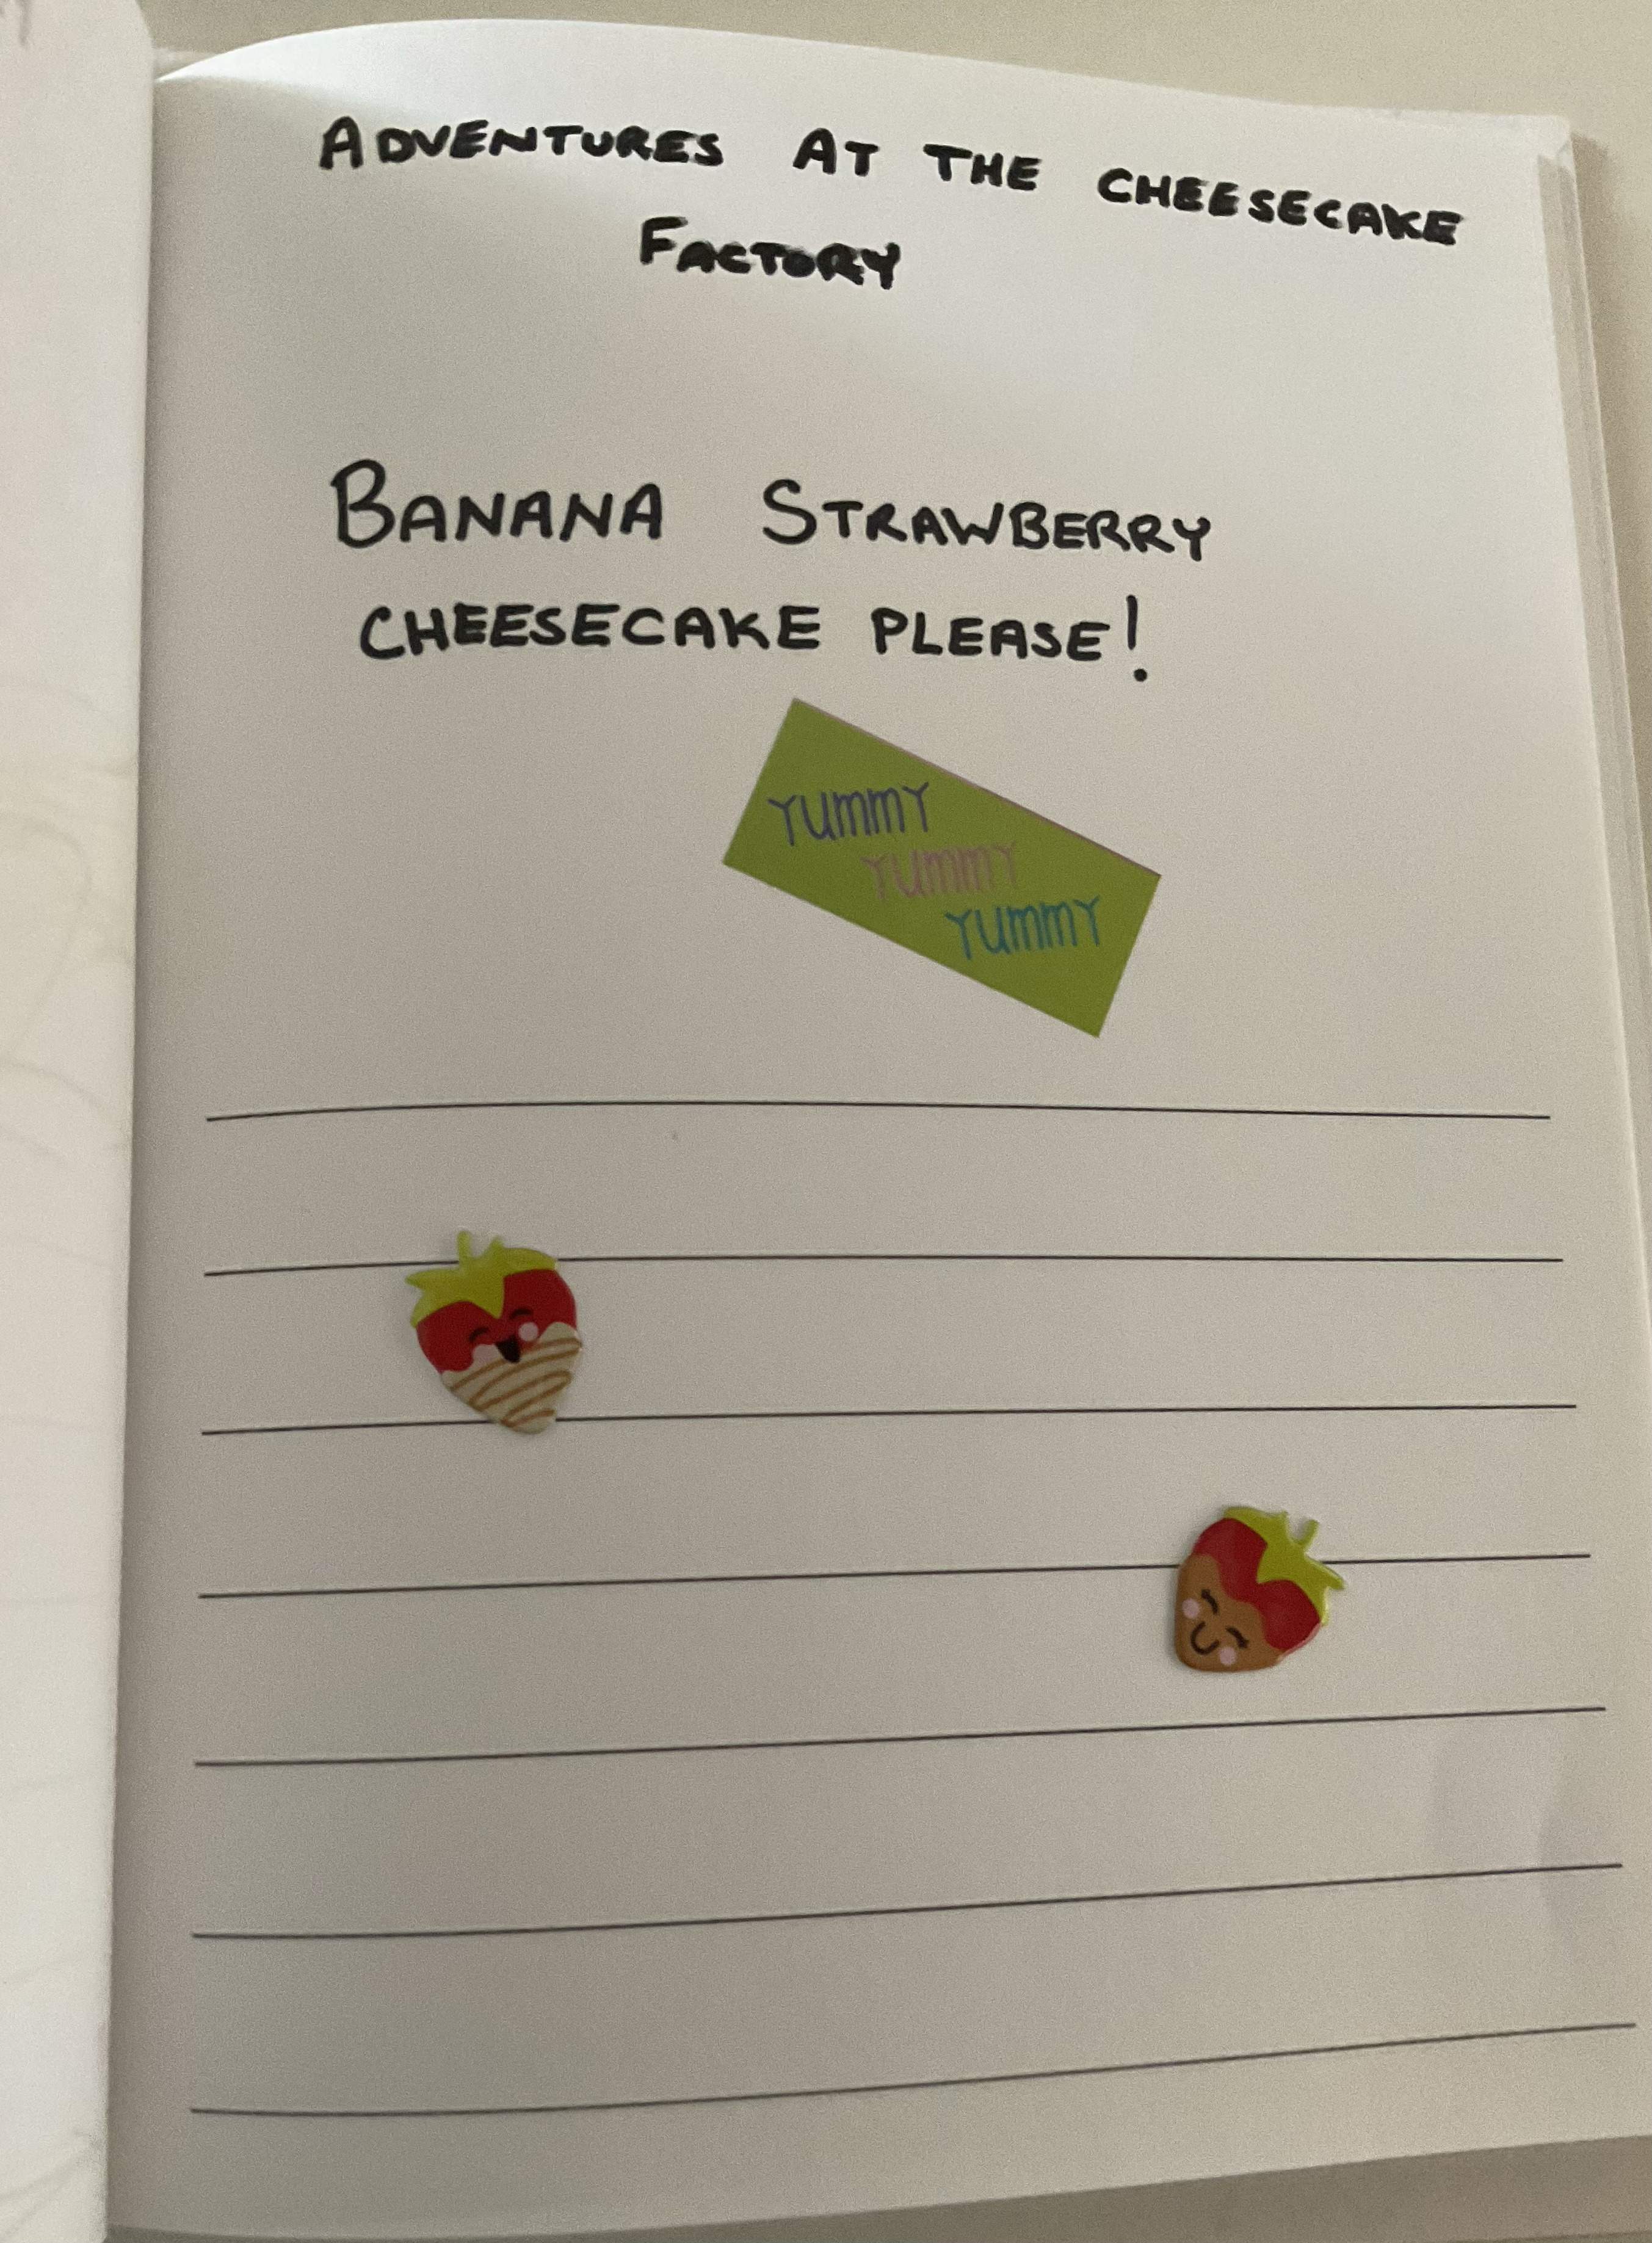 ADVENTURES AT THE CHEESECAKE
FACTORY
BANANA STRAWBERRY
CHEESECAKE PLEASE!
YUMMY
YUMMY
YUMMY